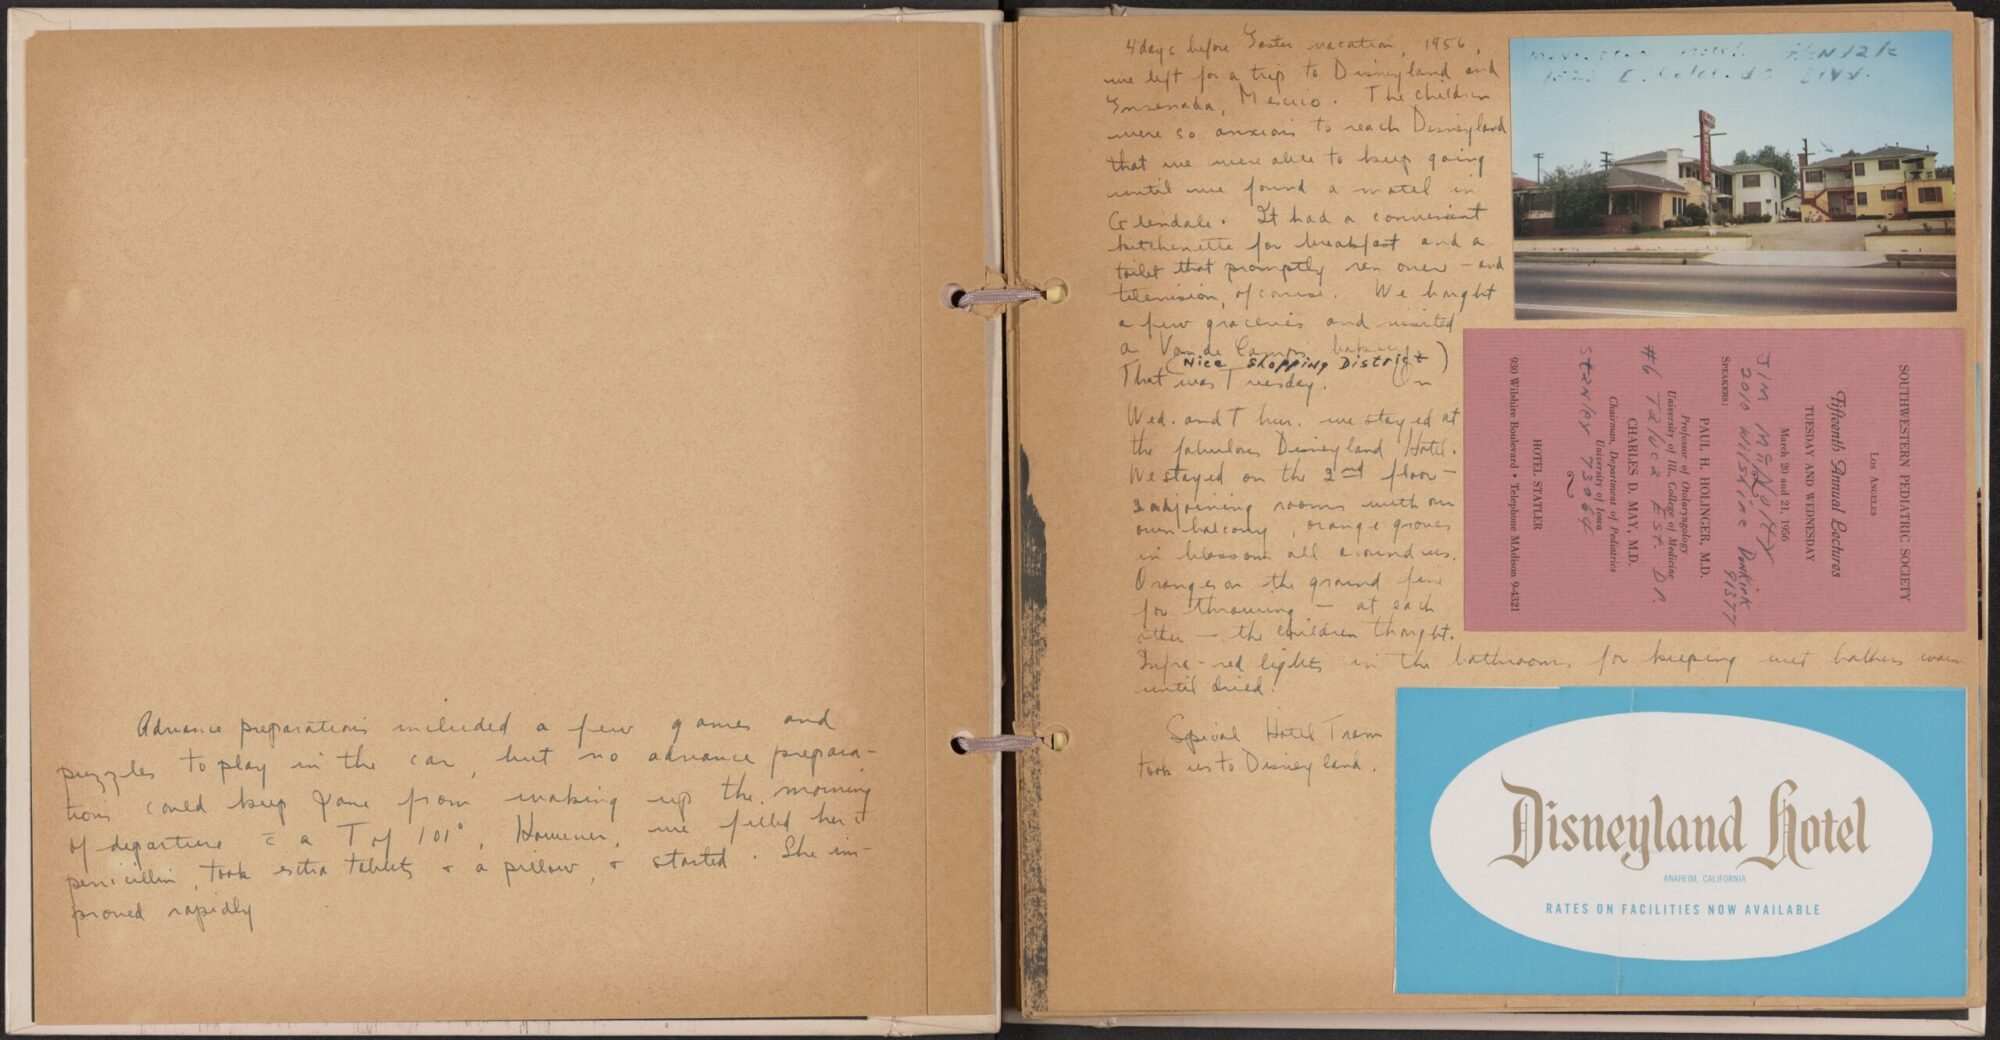 Advance preparations included a few games and
puzzles to play in the car, but no advance prepara-
tions could keep Jane from waking up the morning
of departure c̄ a T of 101°. However, we filled her c̄
penicillin, took extra tablets + a pillow, + started. She im-
proved rapidly
4 days before Easter vacation, 1956,
we left for a trip to Disneyland and
Ensenada, Mexico. The children
were so anxious to reach Disneyland
that we were able to keep going
until we found a motel in
Glendale. It had a convenient
kitchenette for breakfast and a
toilet that promptly ran over – and
television, of course. We bought
a few groceries and visited
a Van de Camps bakery.
(Nice Shopping District)
That was Tuesday. On
Wed. and Thur. we stayed at
the fabulous Disneyland Hotel.
We stayed on the 2nd floor –
2 adjoining rooms with our
own balcony, orange groves
in blossom all around us.
Oranges on the ground fine
for throwing – at each
other – the children thought.
Infra-red lights in the bathrooms for keeping wet bathers warm
until dried.
Special Hotel Tram
took us to Disneyland.
E. Blvd.
MOTEL
SOUTHWESTERN PEDIATRIC SOCIETY
LOS ANGELES
Fifteenth Annual Lectures
TUESDAY AND WEDNESDAY
March 20 and 21, 1956
JIM
2010 Wilshire Dunkirk
91377
SPEAKERS:
PAUL H. HOLINGER, M.D.
Professor of Otolaryngology
University of Ill., College of Medicine
#6 Toluca Est. Dr.
CHARLES D. MAY, M.D.
Chairman, Department of Pediatrics
University of Iowa
Stanley 73064
HOTEL STATLER
930 Wilshire Boulevard • Telephone MAdison 9-4321
Disneyland Hotel
ANAHEIM, CALIFORNIA
RATES ON FACILITIES NOW AVAILABLE